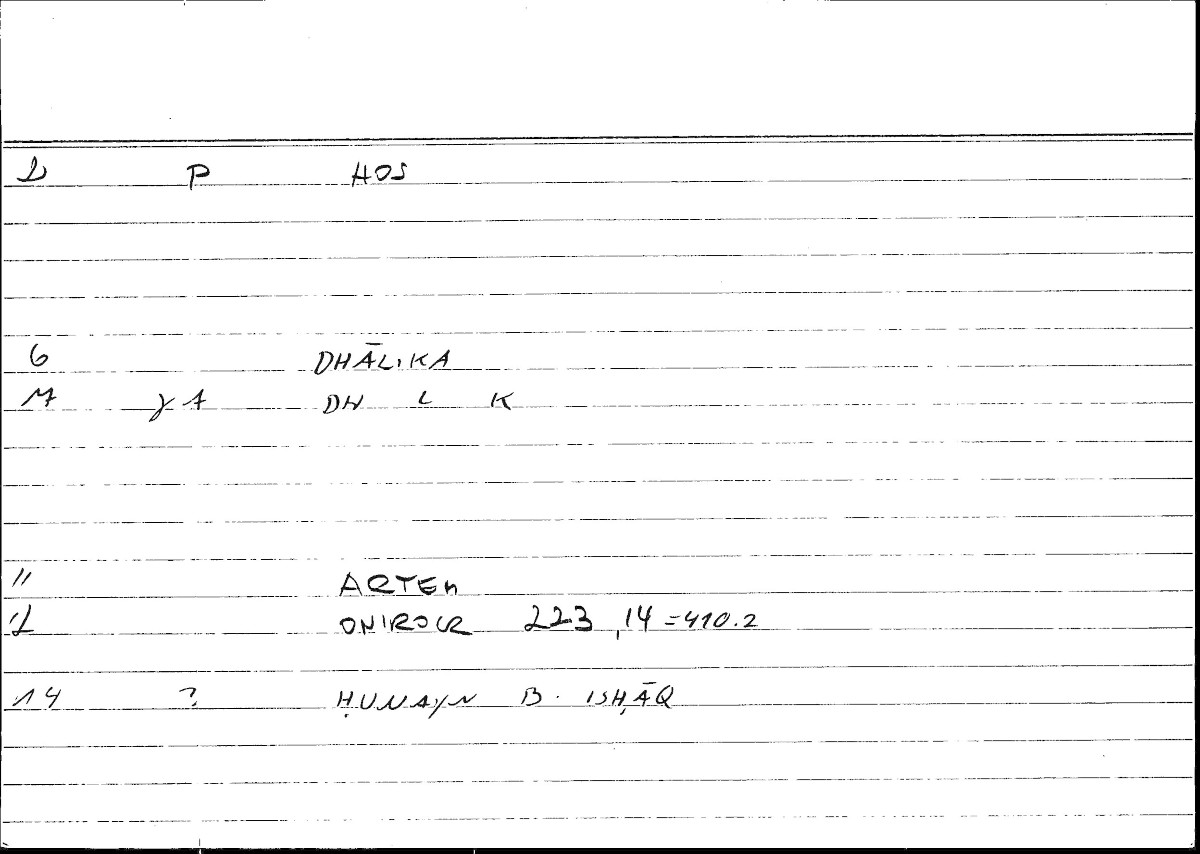 2 P HOS
6 DHĀLIKA
M γ A DH L K
11 ARTEM
2 ONIROCR 223,14 = 410.2
14 ? ḤUNAYN B. ISḤĀQ